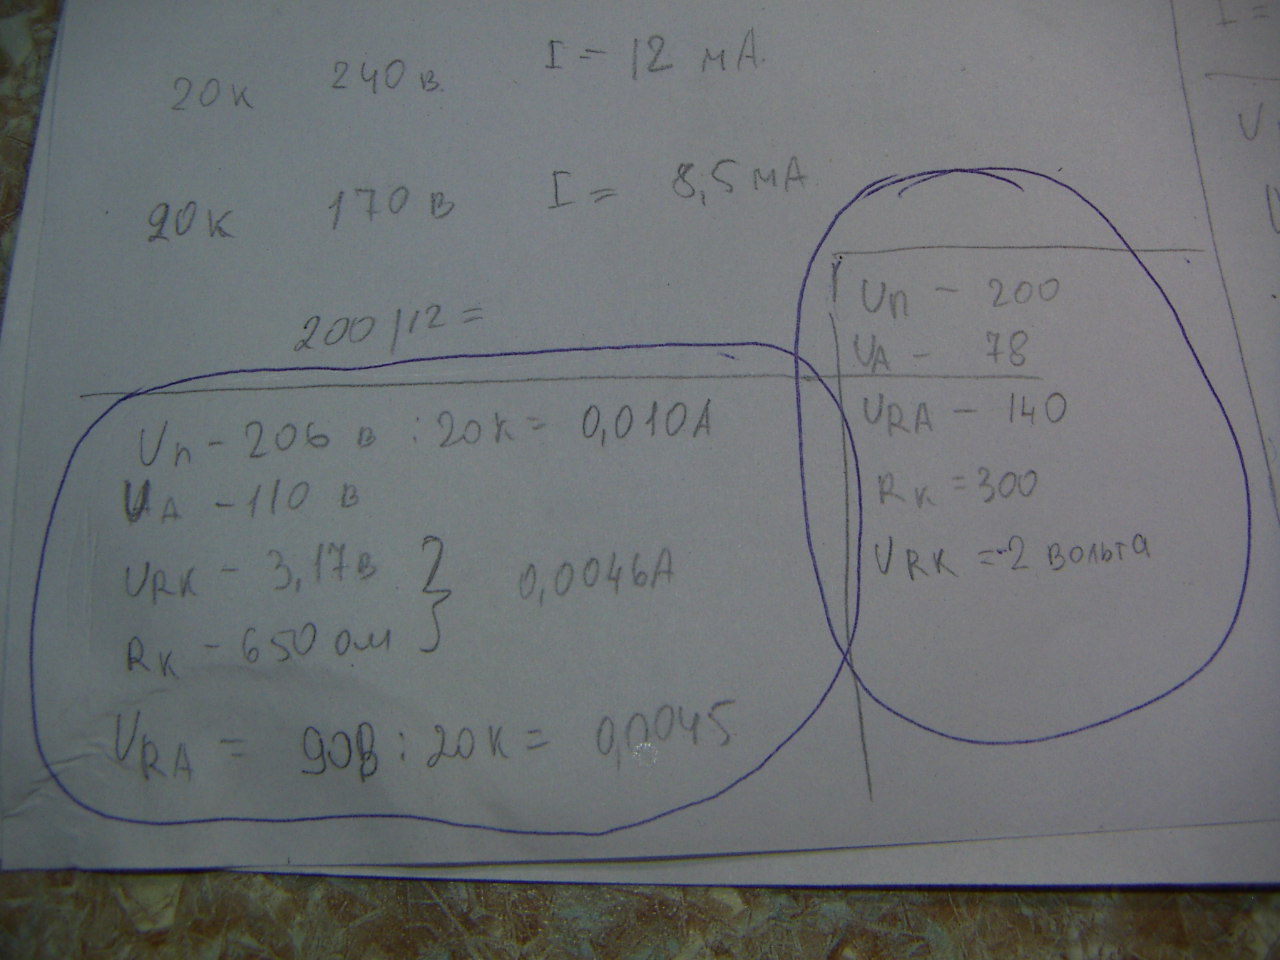 20к 240 в. I = 12 мА.
20к 170 в I = 8,5 мА.
200/12 =
Uп - 206 в : 20к = 0,010А
UА - 110 в
URK - 3,17в } 0,0046А
RK - 650 ом
URA = 90В : 20к = 0,0045
Uп - 200
UА - 78
URA - 140
RK = 300
URK = 2 вольта
I =
U